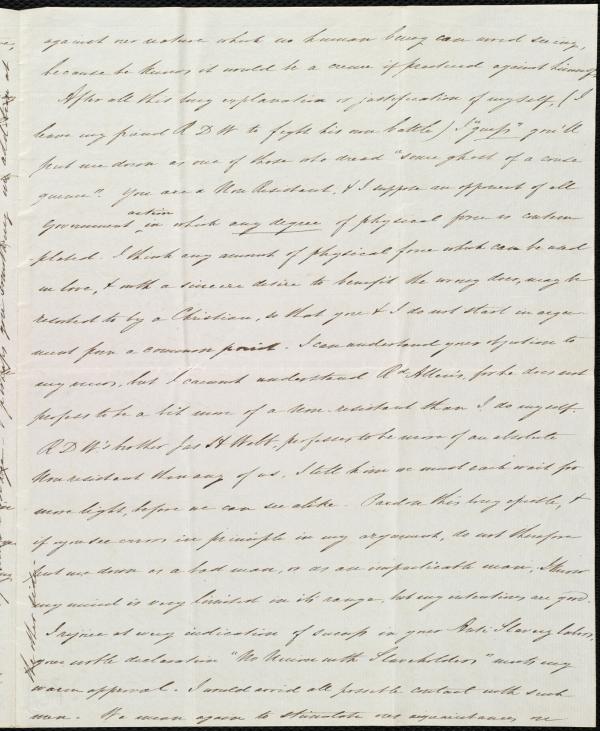 against our nature which no human being can avoid seeing,
because he knows it would be a crime if practiced against himself.
After all this long explanation or justification of myself, (I
leave my friend R D W to fight his own battle) I "guess" you'll
put me down as one of those who dread "some ghost of a conse
quence". You are a Non Resistant, & I suppose an opponent of all
Government action in which any degree of physical force is contem
plated. I think any amount of physical force which can be used
in love, & with a sincere desire to benefit the wrong doer, may be
resorted to by a Christian, so that you & I do not start in argu-
ment from a common point. I can understand your objection to
my views, but I cannot understand Rd Allen's, for he does not
profess to be a bit more of a Non-resistant than I do myself.
R D W's brother, Jas H Webb, professes to be more of an absolute
Non resistant than any of us, I tell him we must each wait for
more light, before we can see alike. Pardon this long epistle, &
if you see errors in principle in my argument, do not therefore
put me down as a bad man, or as an impracticable man, I know
my mind is very limited in its range, but my intentions are good.
I rejoice at every indication of success in your Anti Slavery labors,
your noble declaration "No Union with Slaveholders" meets my
warm approval. I would avoid all possible contact with such
men. We mean again to stimulate our acquaintances, we